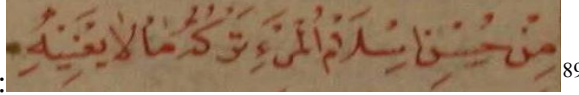 : مِنْ حُسْنِ اِسْلَامِ الْمَرْءِ تَرْكُهُ مَا لَا يَعْنِيْهِ 89